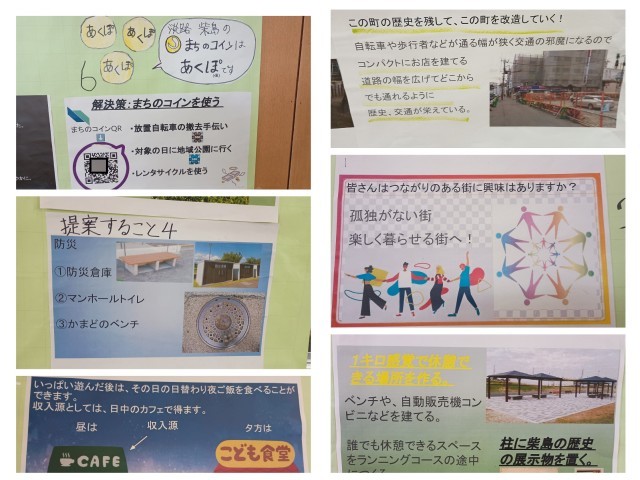 あくぽ
あくぽ
あくぽ
淡路 柴島の
まちのコインは
あくぽです
6
解決策：まちのコインを使う
まちのコインQR
・放置自転車の撤去手伝い
・対象の日に地域公園に行く
・レンタサイクルを使う
提案すること4
防災
①防災倉庫
②マンホールトイレ
③かまどのベンチ
いっぱい遊んだ後は、その日の日替わり夜ご飯を食べることが
できます。
収入源としては、日中のカフェで得ます。
昼は
収入源
夕方は
CAFE
こども食堂
この町の歴史を残して、この町を改造していく！
自転車や歩行者などが通る幅が狭く交通の邪魔になるので
コンパクトにお店を建てる
道路の幅を広げてどこから
でも通れるように
歴史、交通が栄えている。
皆さんはつながりのある街に興味はありますか？
孤独がない街
楽しく暮らせる街へ！
1キロ感覚で休憩で
きる場所を作る。
ベンチや、自動販売機コン
ビニなどを建てる。
誰でも休憩できるスペース
をランニングコースの途中
につくる
柱に柴島の歴史
の展示物を置く。